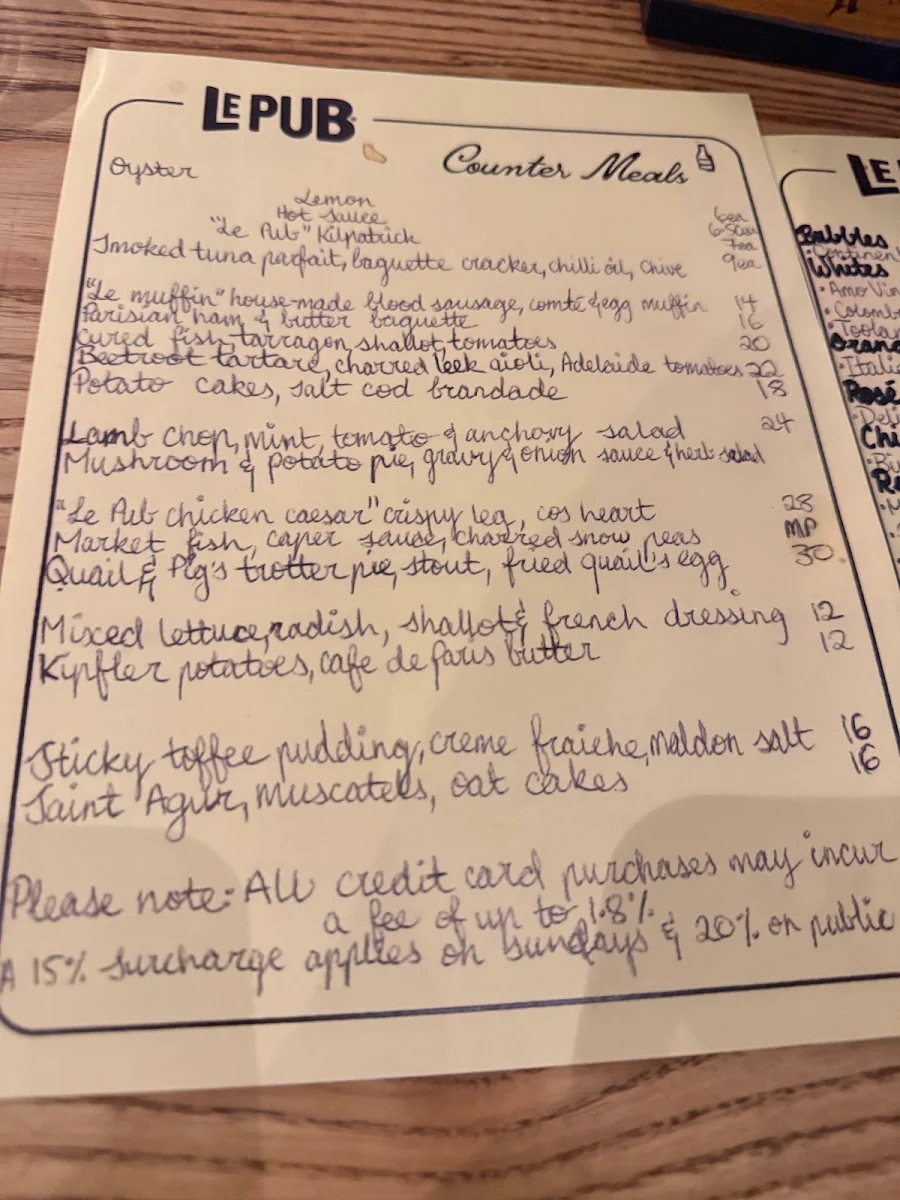 LE PUB
Counter Meals
Oyster
Lemon 6ea
Hot Sauce 6.50ea
"Le Pub" Kilpatrick 7ea
Smoked tuna parfait, baguette cracker, chilli oil, chive 9ea
"Le muffin" house-made blood sausage, comté & egg muffin 14
Parisian ham & butter baguette 16
Cured fish, tarragon, shallot, tomatoes 20
Beetroot tartare, charred leek aioli, Adelaide tomatoes 22
Potato cakes, salt cod brandade 18
Lamb chop, mint, tomato & anchovy salad 24
Mushroom & potato pie, gravy & onion sauce & herb salad
"Le Pub chicken caesar" crispy leg, cos heart 28
Market fish, caper sauce, charred snow peas MP
Quail & Pig's trotter pie, stout, fried quail's egg 30
Mixed lettuce, radish, shallot & french dressing 12
Kipfler potatoes, cafe de Paris butter 12
Sticky toffee pudding, creme fraiche, maldon salt 16
Saint Agur, muscatels, oat cakes 16
Please note: All credit card purchases may incur
a fee of up to 1.8%
A 15% surcharge applies on Sundays & 20% on public
LE
Bubbles
Whites
Rosé